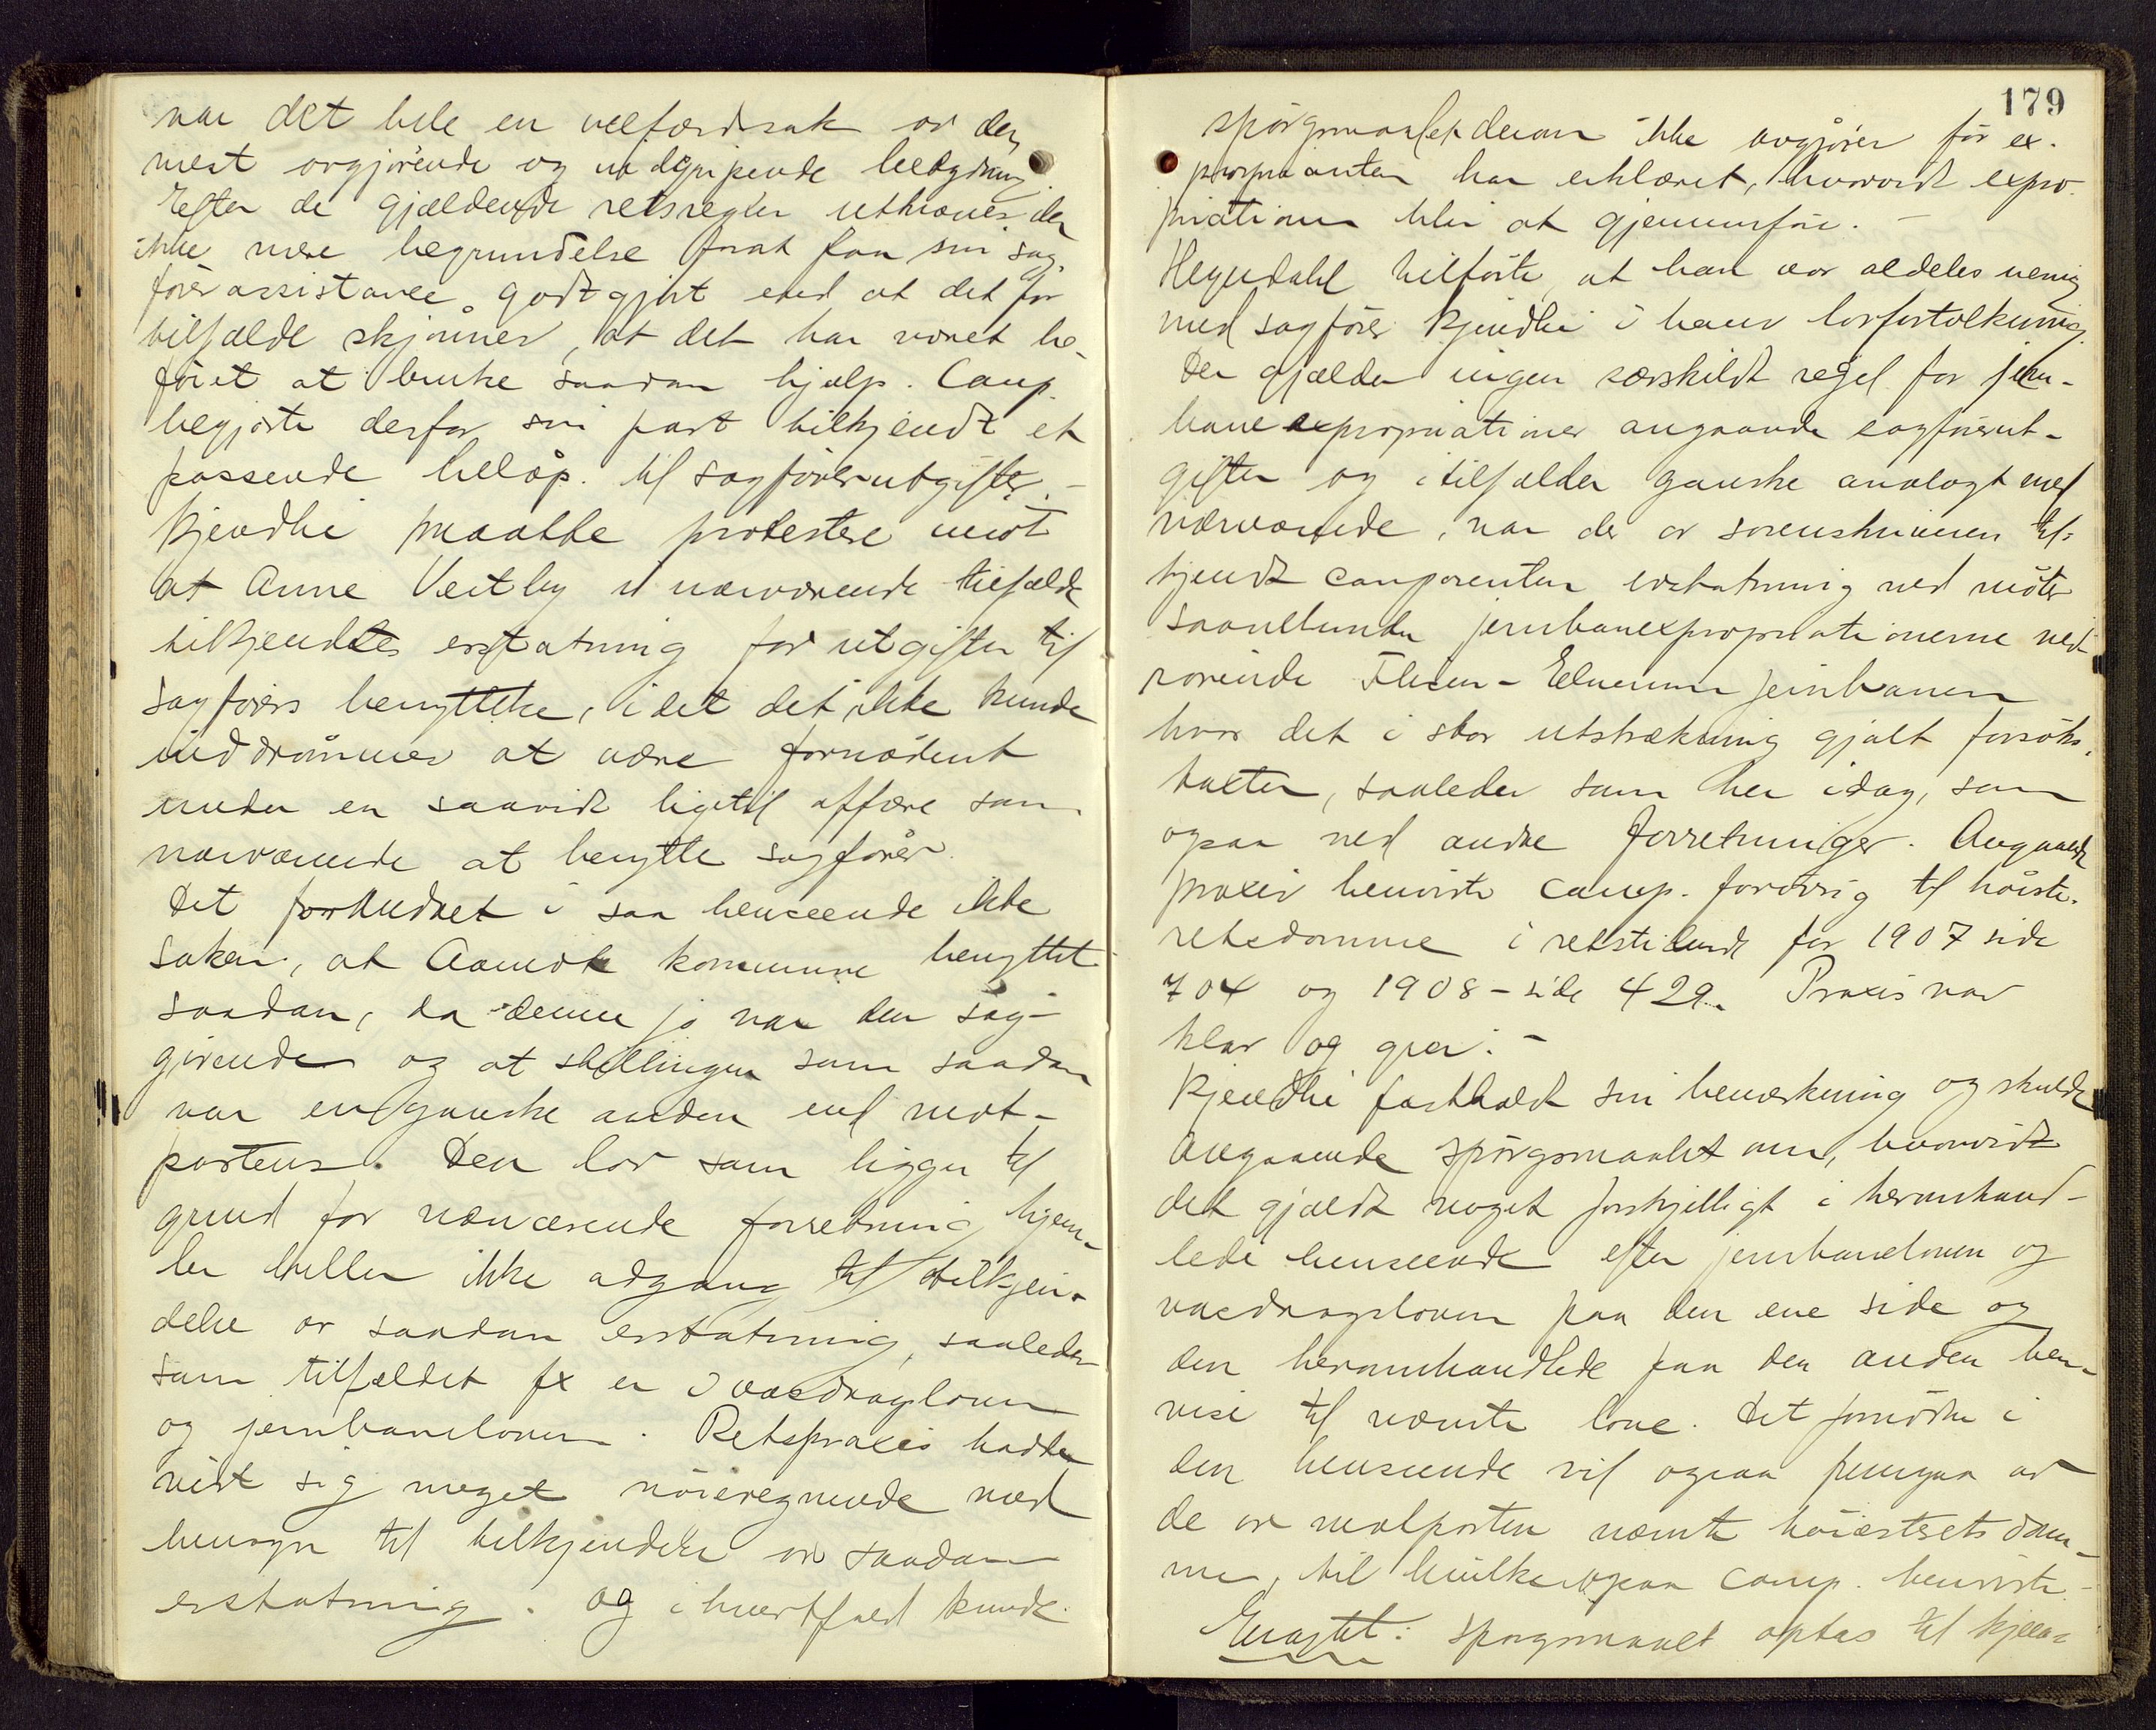 var det hele en velfærdssak av den
mest avgjørende og indgripende betydning.
Efter de gjældende retsregler utkræves der
ikke mere begrundelse forat faa sin sag-
førerassistance godtgjort end at det for
tilfælde skjønnes, at det har været be-
føiet at bruke saadan hjælp. Comp.
begjærte derfor sin part tilkjendt et
passende beløp til sagførerutgifter. -
Kjendli maatte protestere mot
at Anne Vestby i nærværende tilfælde
tilkjendtes erstatning for utgifter til
sagførers benyttelse, idet det ikke kunde
inddrømmes at være fornødent
under en saavidt liketil affære som
nærværende at benytte sagfører.
Det forandret i saa henseende ikke
saken, at Aamot kommune benyttet
saadan, da denne jo var den sag-
givende og at stillingen som saadan
var en ganske anden end mot-
partens. Den lov som ligger til
grund for nærværende forretning hjem-
ler heller ikke adgang til tilkjen-
delse av saadan erstatning, saaledes
som tilfældet fx er i vasdragsloven
og jernbaneloven. Retspraxis hadde
vist sig meget nøieregnende med
hensyn til tilkjendelse av saadan
erstatning. og i hvertfald kunde
179
spørgsmaalet derom ikke avgjøres før ex-
proprianten har erklæret, hvorvidt expro-
priationen blir at gjennemføre. -
Heyerdahl tilførte, at han var aldeles uenig
med sagfører Kjendli i hans lovfortolkning.
Der gjælder ingen særskildt regel for jern-
baneexpropriationer angaaende sagførerut-
gifter og i tilfælder ganske analogt med
nærværende, var der av sorenskriveren til-
kjendt comparenten erstatning ved møter
saavelunder jernbanexpropriationerne ved-
rørende Flisen - Elverum jernbanen
hvor det i stor utstrækning gjalt forsøks-
takster, saaledes som her idag, som
ogsaa ved andre forretninger. Angaaende
praxis henviste comp. forøvrig til høieste-
retsdomme i retstidende for 1907 side
704 og 1908 - side 429. Praxis var
klar og grei. -
Kjendli fastholdt sin bemerkning og skulde
angaaende spørgsmaalet om, hvorvidt
det gjældt noget forskjelligt i heromhand-
lede henseende efter jernbaneloven og
vasdragsloven paa den ene side og
den heromhandlede paa den anden hen-
vise til nævnte love. Det fornødne i
den henseende vil ogsaa fremgaa av
de av motparten nævnte høiesterets dom-
me, til hvilke ogsaa comp. henviste. -
Eragtet: Spørgsmaalet optas til kjen-